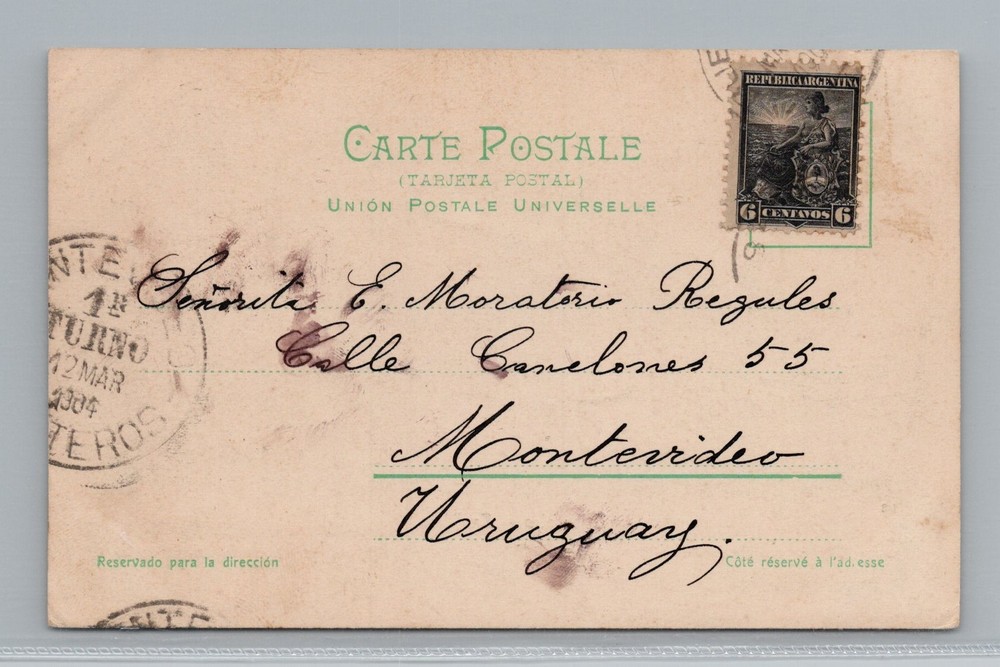 REPUBLICA ARGENTINA
6 CENTAVOS 6
CARTE POSTALE
(TARJETA POSTAL)
UNIÓN POSTALE UNIVERSELLE
NTE
1R
TURNO
12 MAR
1904
TEROS
Señorita E. Moratorio Regules
Calle Canelones 55
Montevideo
Uruguay.
Reservado para la dirección
Côté réservé à l'adresse
NTE